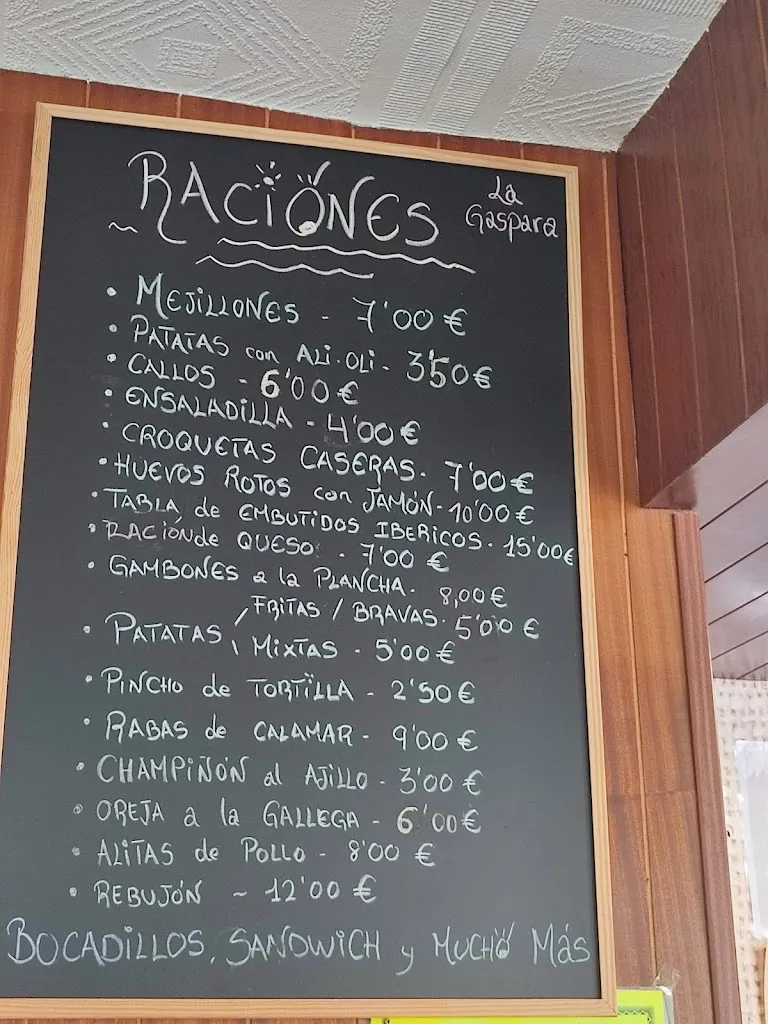 RACIONES
La Gaspara
• MEJILLONES - 7'00 €
• PATATAS con ALI-OLI - 3'50 €
• CALLOS - 6'00 €
• ENSALADILLA - 4'00 €
• CROQUETAS CASERAS - 7'00 €
• HUEVOS ROTOS con JAMÓN - 10'00 €
• TABLA de EMBUTIDOS IBERICOS - 15'00 €
• RACIÓN de QUESO - 7'00 €
• GAMBONES a la PLANCHA - 8,00 €
• PATATAS / FRITAS / BRAVAS - 5'00 €
\ MIXTAS - 5'00 €
• PINCHO de TORTILLA - 2'50 €
• RABAS de CALAMAR - 9'00 €
• CHAMPIÑÓN al AJILLO - 3'00 €
• OREJA a la GALLEGA - 6'00 €
• ALITAS de POLLO - 8'00 €
• REBUJÓN ~ 12'00 €
BOCADILLOS, SANDWICH y MUCHO MÁS